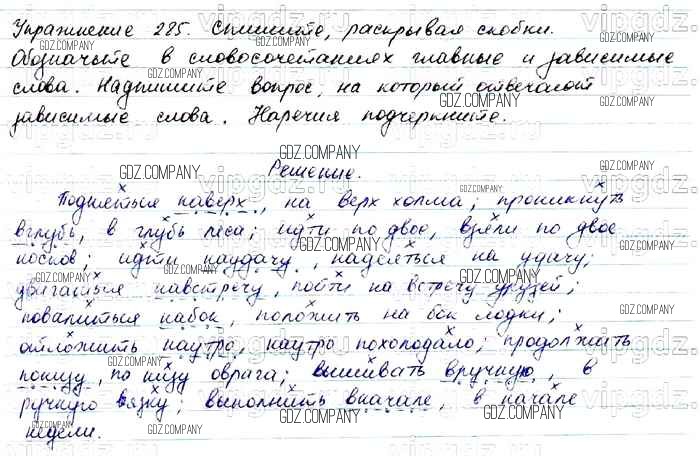 Упражнение 285. Спишите, раскрывая скобки.
Обозначьте в словосочетаниях главные и зависимые
слова. Надпишите вопрос, на который отвечают
зависимые слова. Наречия подчеркните.
Решение.
Подняться наверх, на верх холма; проникнуть
вглубь, в глубь леса; идти по двое, взяли по двое
носков; идти наудачу, надеяться на удачу;
двигаться навстречу, пойти на встречу друзей;
повалиться набок, положить на бок лодки;
отложить наутро, наутро похолодало; продолжить
понизу, по низу оврага; вышивать вручную, в
ручную вязку; выполнить вначале, в начале
недели.
GDZ.COMPANY
vipgdz.ru